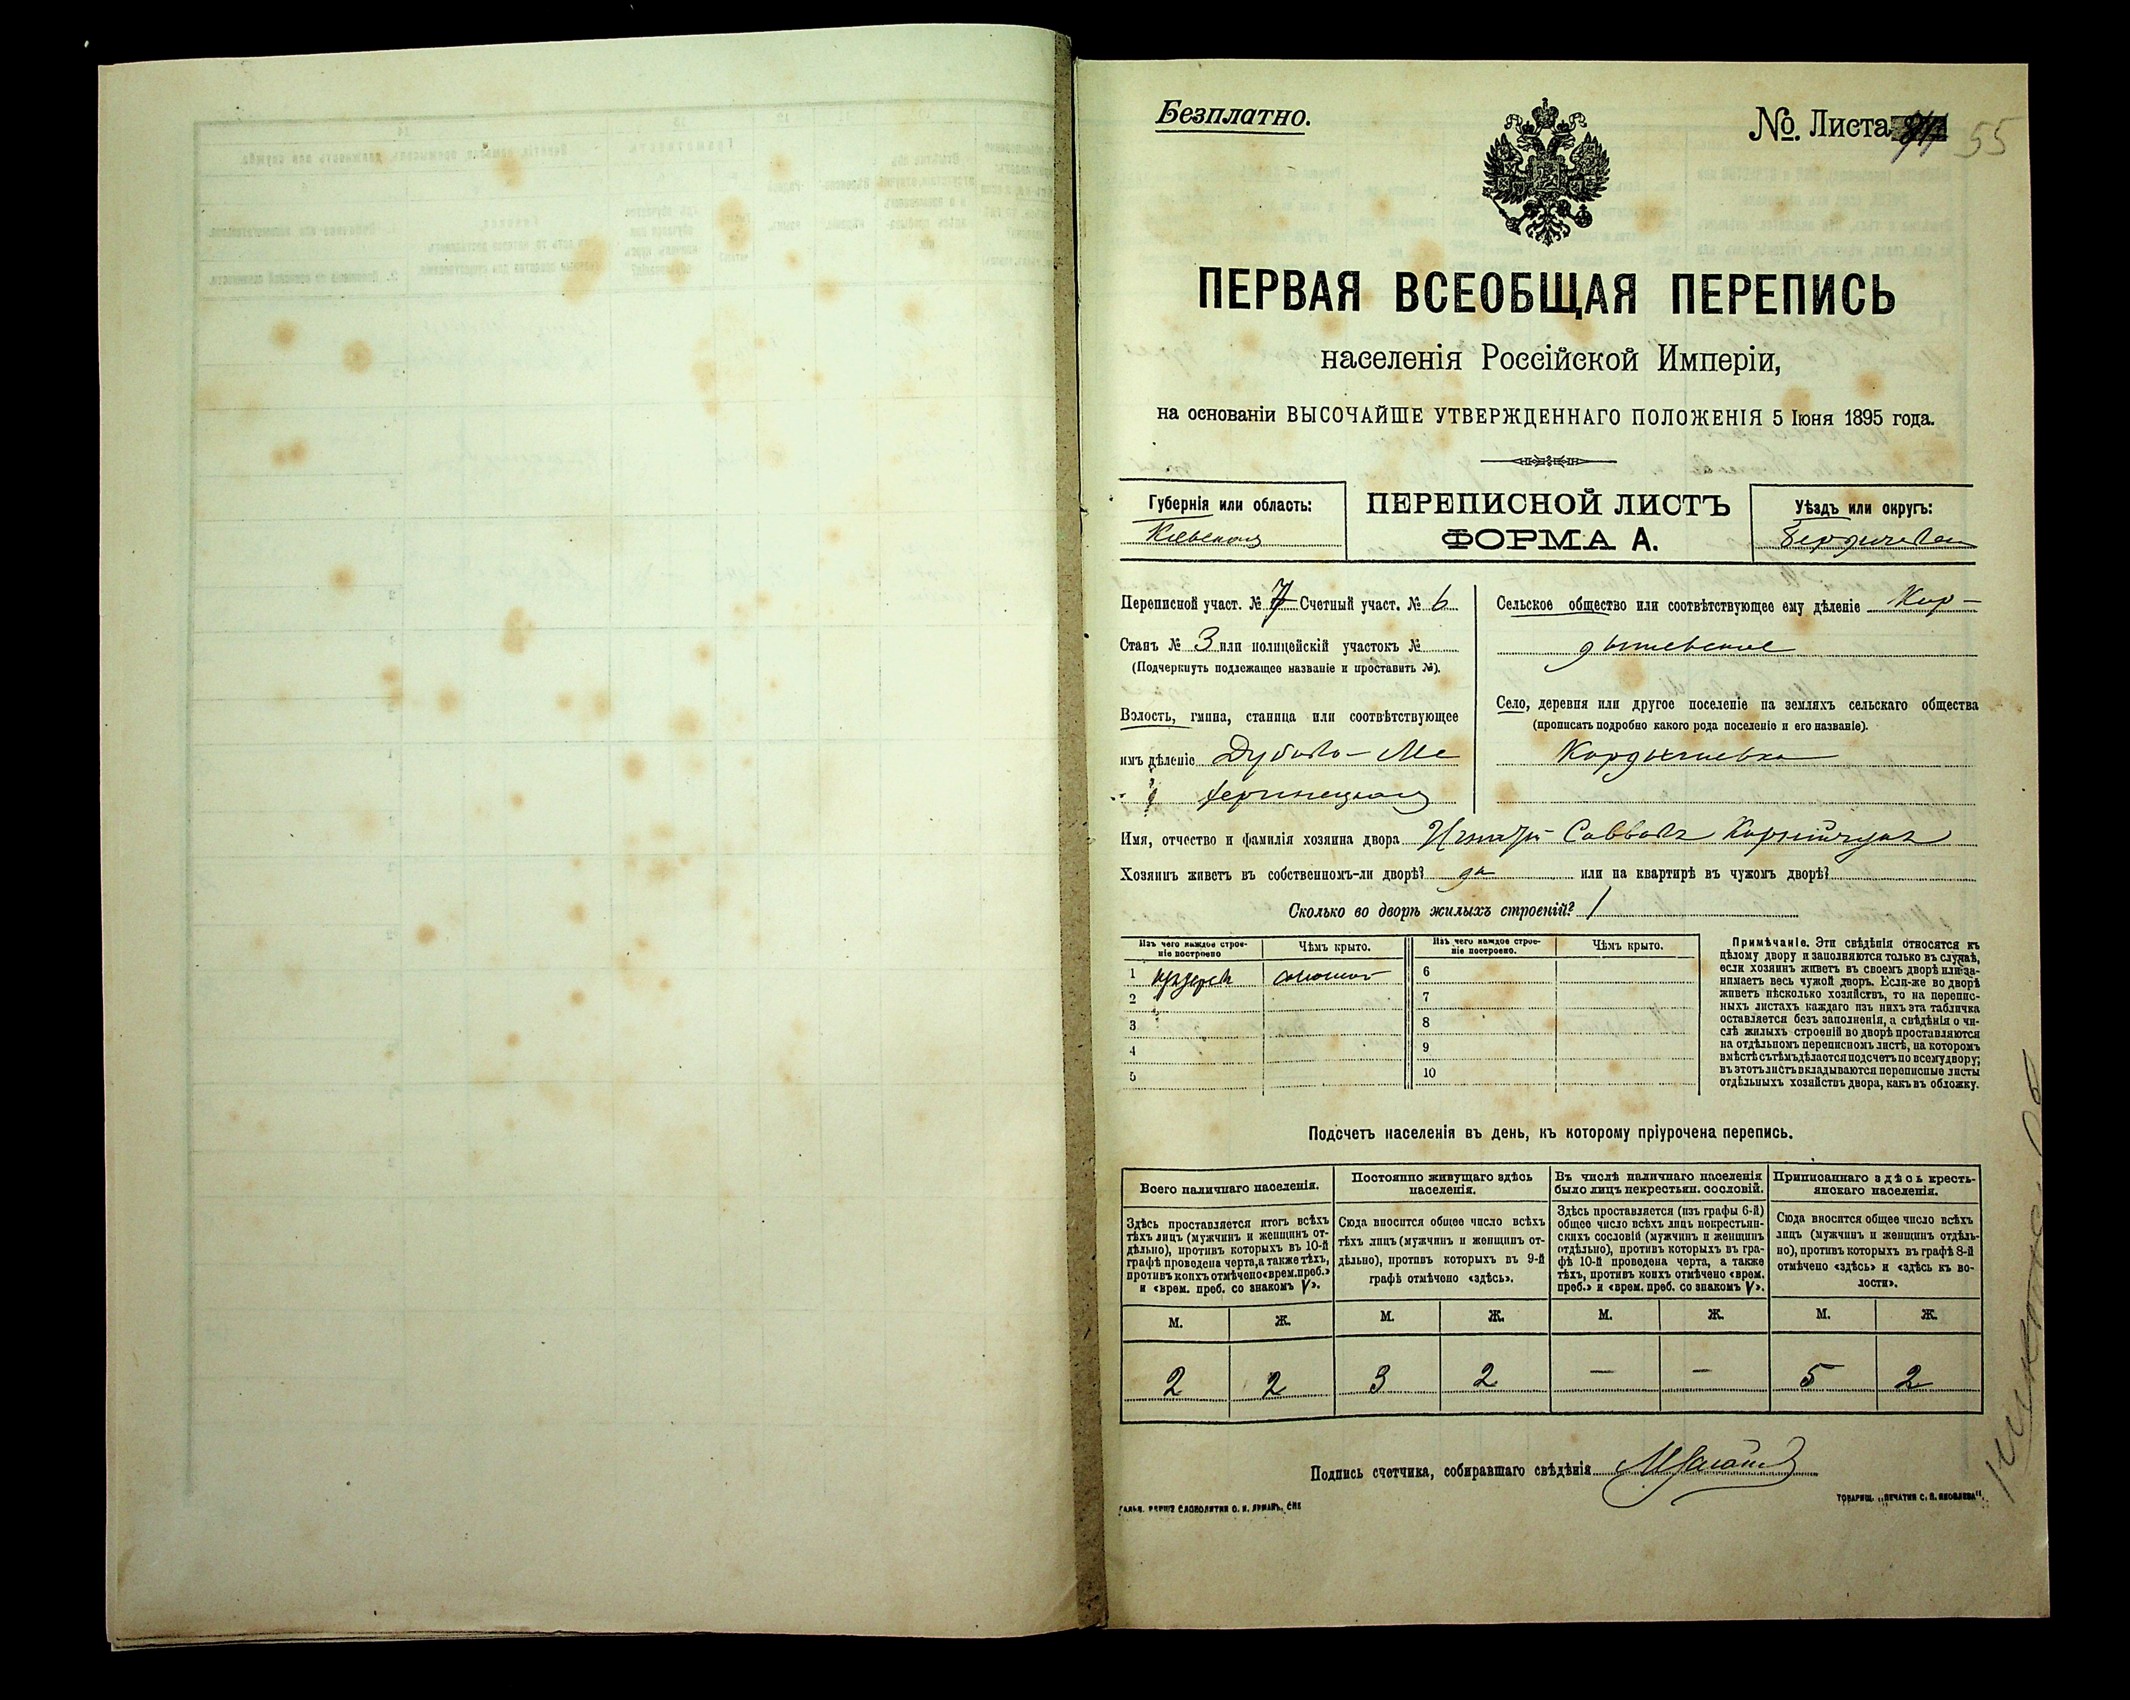 Безплатно.
№ Листа 55
ПЕРВАЯ ВСЕОБЩАЯ ПЕРЕПИСЬ
населенія Россійской Имперіи,
на основаніи ВЫСОЧАЙШЕ УТВЕРЖДЕННАГО ПОЛОЖЕНІЯ 5 Іюня 1895 года.
Губернія или область:
Кіевская
ПЕРЕПИСНОЙ ЛИСТЪ
ФОРМА А.
Уѣздъ или округъ:
Бердичевск
Переписной участ. № 7 Счетный участ. № 6
Станъ № 3 или полицейскій участокъ №
(Подчеркнуть подлежащее названіе и проставить №).
Волость, гмина, станица или соотвѣтствующее
имъ дѣленіе Дубово-Ме
жеринецкая
Сельское общество или соотвѣтствующее ему дѣленіе Кор-
дышевское
Село, деревня или другое поселеніе на земляхъ сельскаго общества
(прописать подробно какого рода поселеніе и его названіе).
Кордышевка
Имя, отчество и фамилія хозяина двора Саввовъ Корнійчукъ
Хозяинъ живетъ въ собственномъ-ли дворѣ? да или на квартирѣ въ чужомъ дворѣ?
Сколько во дворѣ жилыхъ строеній? 1
Изъ чего каждое строе-
ніе построено
Чѣмъ крыто.
Изъ чего каждое строе-
ніе построено.
Чѣмъ крыто.
1 соломой
2
3
4
5
6
7
8
9
10
Примѣчаніе. Эти свѣдѣнія относятся къ
цѣлому двору и заполняются только въ случаѣ,
если хозяинъ живетъ въ своемъ дворѣ или за-
нимаетъ весь чужой дворъ. Если-же во дворѣ
живетъ нѣсколько хозяйствъ, то на перепис-
ныхъ листахъ каждаго изъ нихъ эта табличка
оставляется безъ заполненія, а свѣдѣнія о чи-
слѣ жилыхъ строеній во дворѣ проставляются
на отдѣльномъ переписномъ листѣ, на которомъ
вмѣстѣ съ тѣмъ дѣлается подсчетъ по всему двору;
въ этотъ листъ вкладываются переписные листы
отдѣльныхъ хозяйствъ двора, какъ въ обложку.
Подсчетъ населенія въ день, къ которому пріурочена перепись.
Всего наличнаго населенія.
Здѣсь проставляется итогъ всѣхъ
тѣхъ лицъ (мужчинъ и женщинъ от-
дѣльно), противъ которыхъ въ 10-й
графѣ проведена черта, а также тѣхъ,
противъ коихъ отмѣчено «врем. преб.»
и «врем. преб. со знакомъ V».
М. Ж.
2 2
Постоянно живущаго здѣсь
населенія.
Сюда вносится общее число всѣхъ
тѣхъ лицъ (мужчинъ и женщинъ от-
дѣльно), противъ которыхъ въ 9-й
графѣ отмѣчено «здѣсь».
М. Ж.
3 2
Въ числѣ наличнаго населенія
было лицъ некрестьян. сословій.
Здѣсь проставляется (изъ графы 6-й)
общее число всѣхъ лицъ некрестьян-
скихъ сословій (мужчинъ и женщинъ
отдѣльно), противъ которыхъ въ гра-
фѣ 10-й проведена черта, а также
тѣхъ, противъ коихъ отмѣчено «врем.
преб.» и «врем. преб. со знакомъ V».
М. Ж.
— —
Приписаннаго здѣсь кресть-
янскаго населенія.
Сюда вносится общее число всѣхъ
лицъ (мужчинъ и женщинъ отдѣль-
но), противъ которыхъ въ графѣ 8-й
отмѣчено «здѣсь» и «здѣсь къ во-
лости».
М. Ж.
5 2
Подпись счетчика, собиравшаго свѣдѣнія
ТОВАРИЩ. „ПЕЧАТНЯ С. П. ЯКОВЛЕВА".